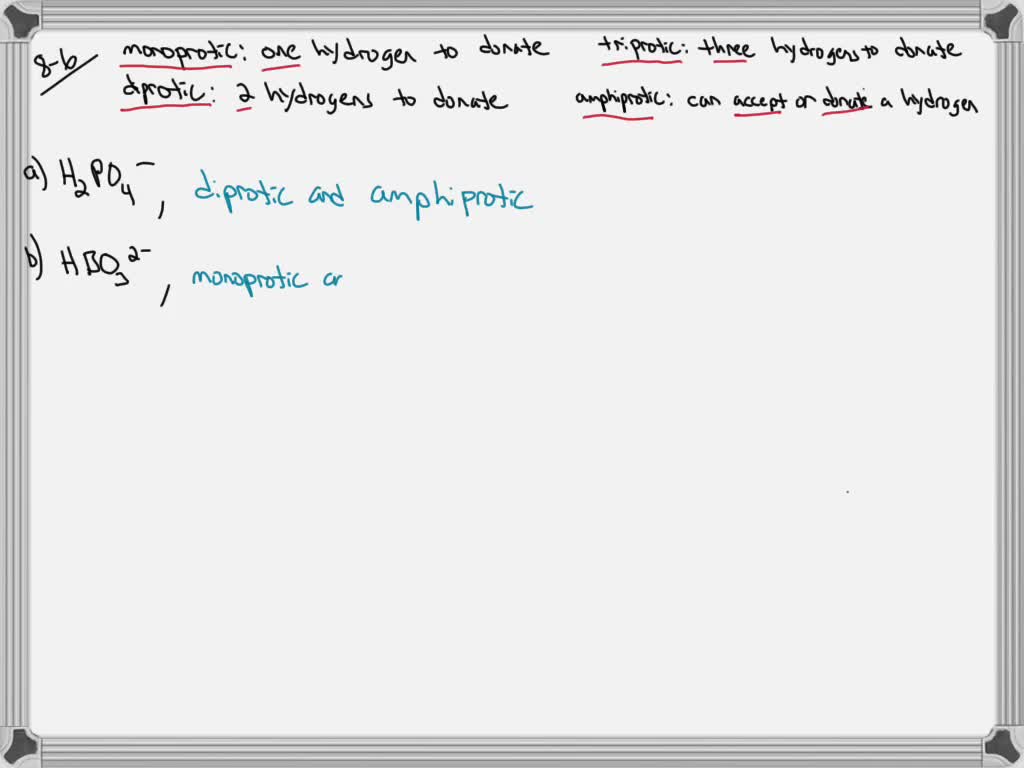 8-b
monoprotic: one hydrogen to donate
triprotic: three hydrogens to donate
diprotic: 2 hydrogens to donate
amphiprotic: can accept or donate a hydrogen
a) H₂PO₄⁻, diprotic and amphiprotic
b) HBO₃²⁻, monoprotic ar